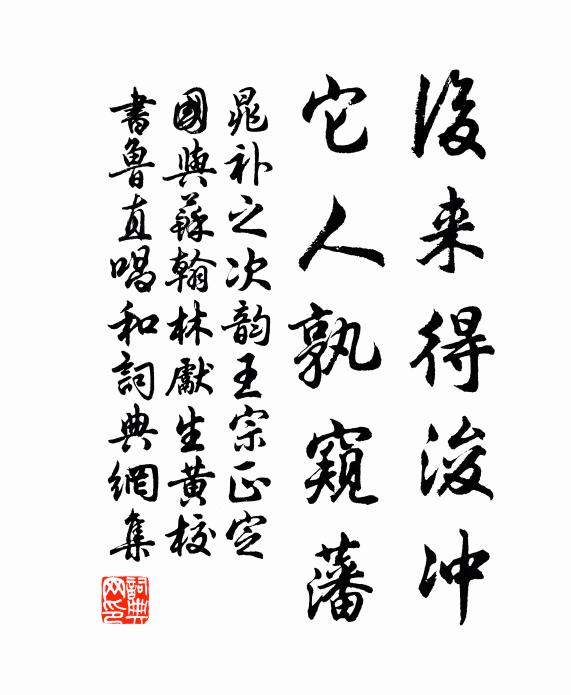 後来得浚冲
它人孰窺藩
晁补之次韵王宗正定
國與蘇翰林獻生黄校
書魯直唱和詞典網集
詞典網印